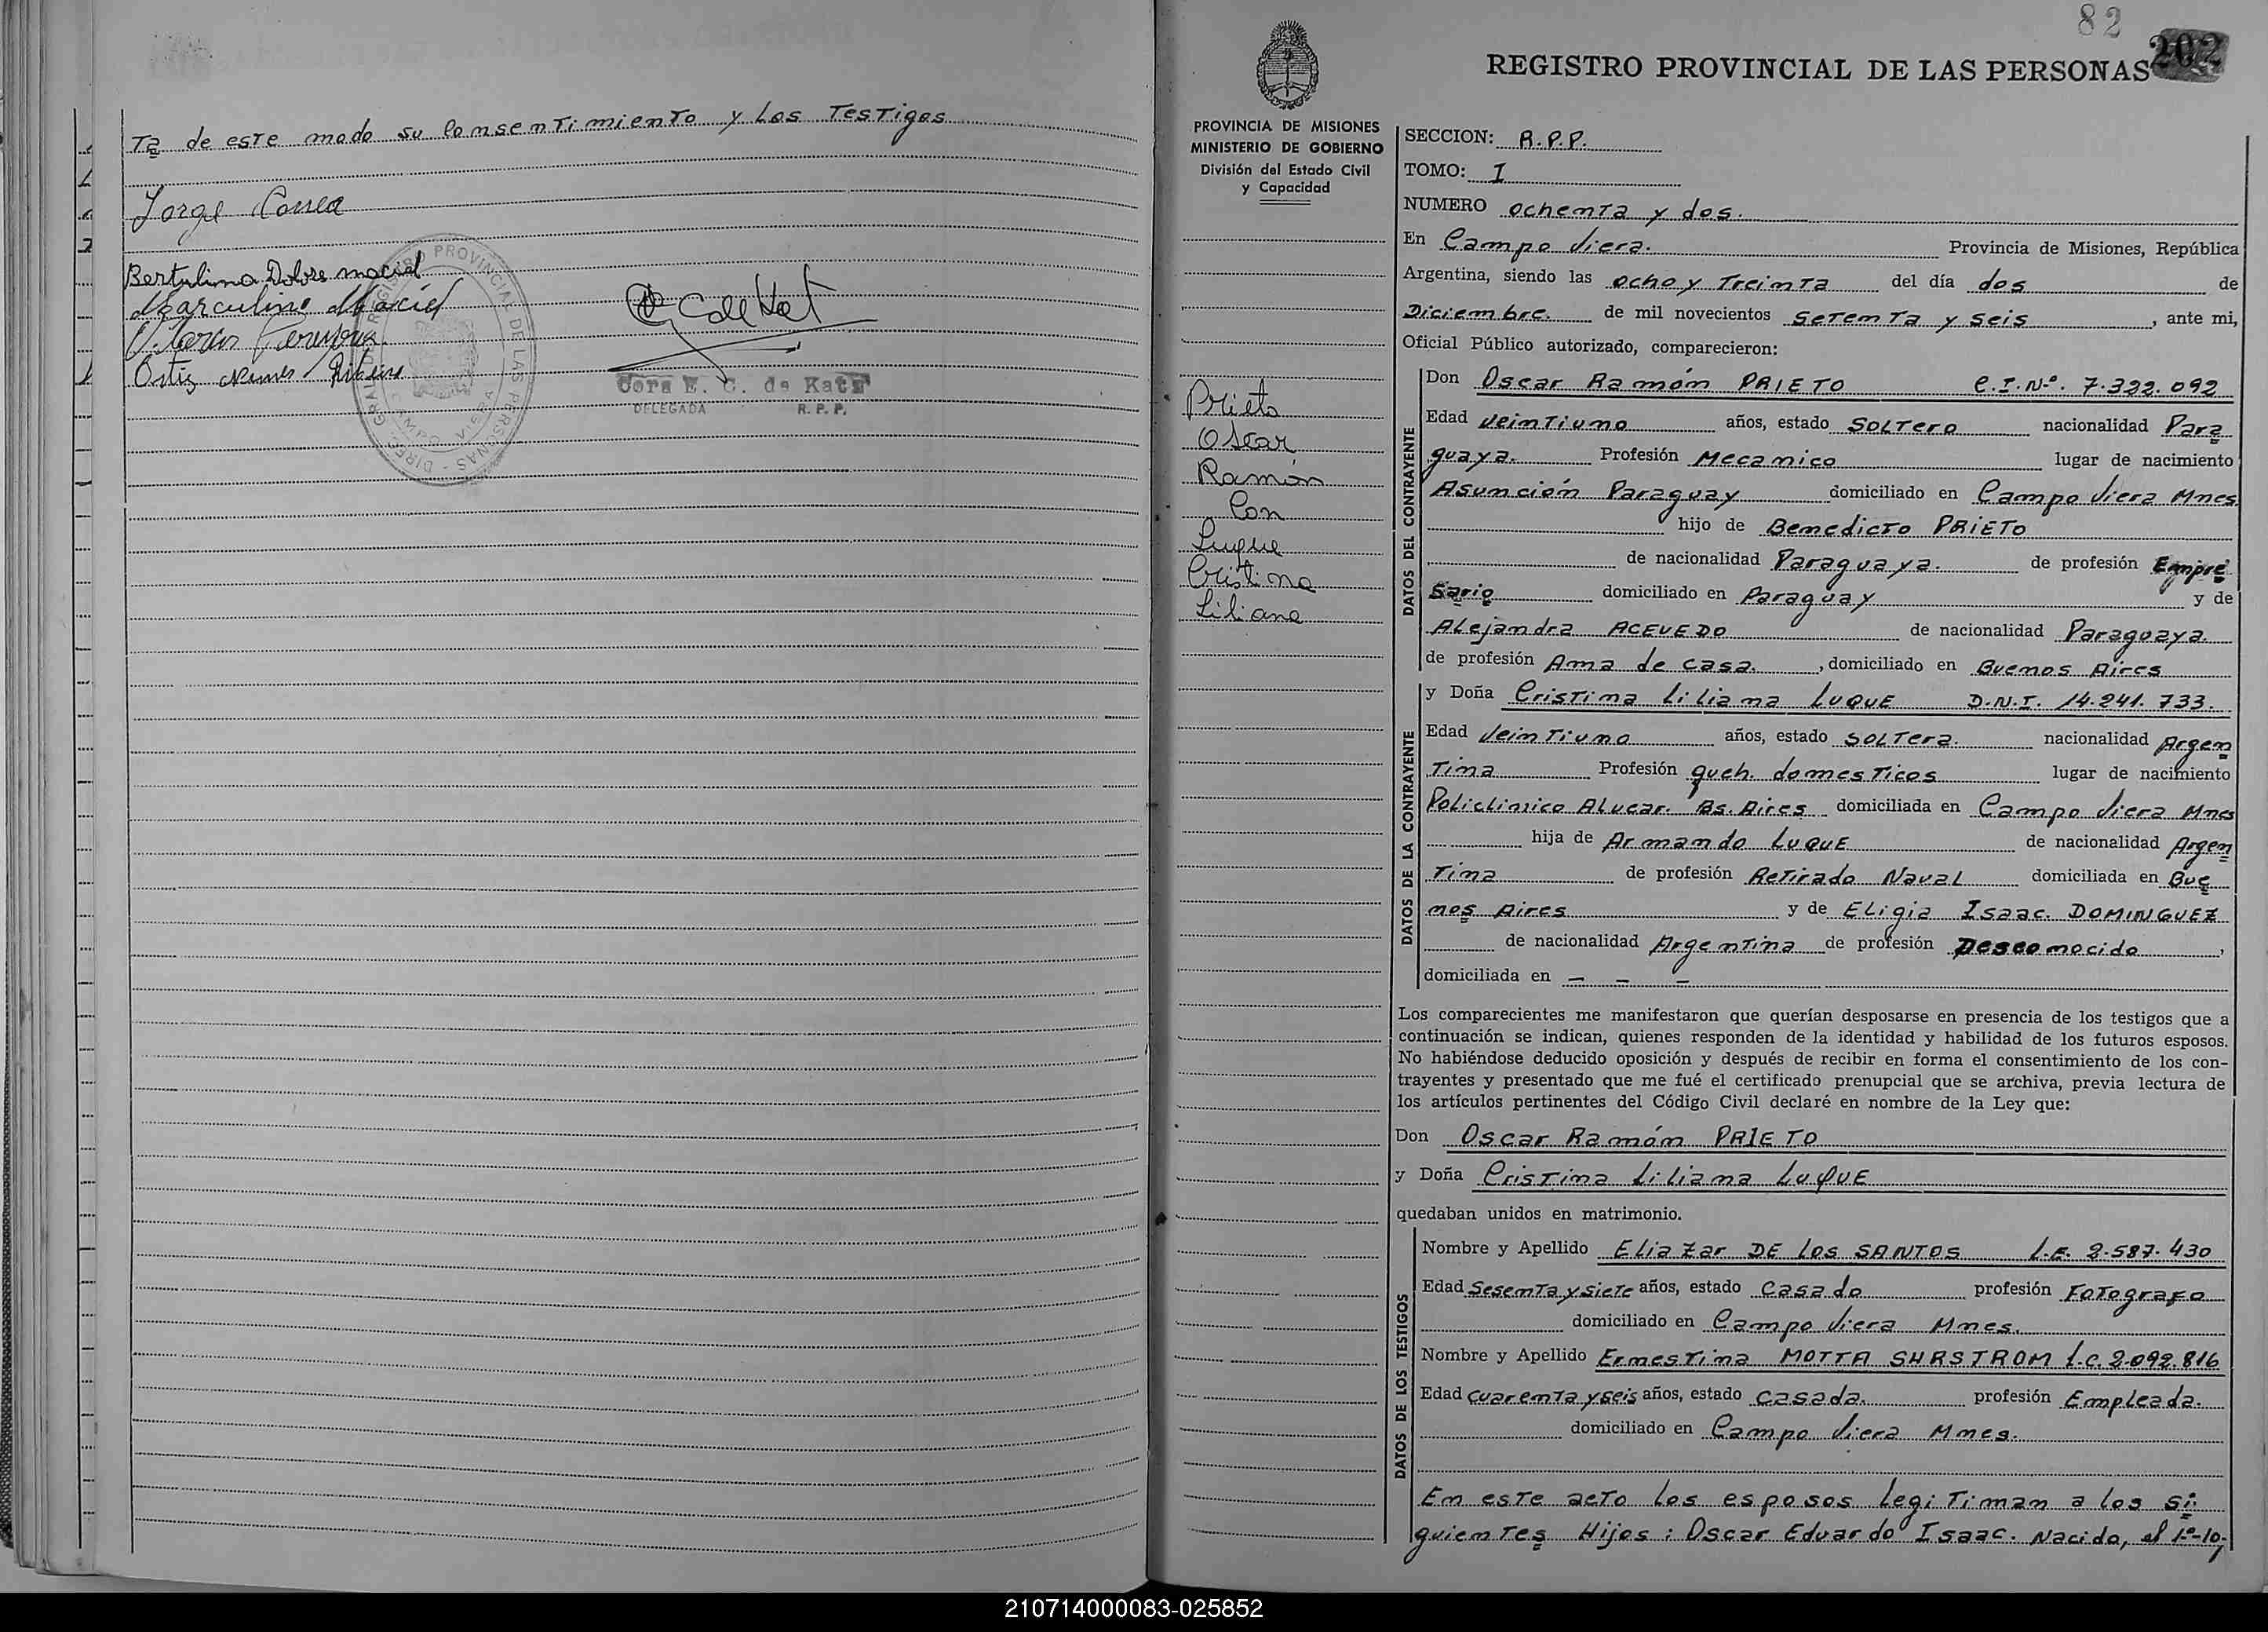 Ta de este modo su Consentimiento y Los Testigos
Jorge Correa
Bertulina Dolores maciel
Marculino Maciel
Ortiz
REGISTRO PROVINCIAL DE LAS PERSONAS
CAMPO VIERA
Cora E. C. de Katz
DELEGADA R. P. P.
82
202
REGISTRO PROVINCIAL DE LAS PERSONAS
PROVINCIA DE MISIONES
MINISTERIO DE GOBIERNO
División del Estado Civil
y Capacidad
Prieto
Oscar
Ramón
Con
Luque
Cristina
Liliana
SECCION: R.P.P.
TOMO: I
NUMERO ochenta y dos.
En Campo Viera. Provincia de Misiones, República
Argentina, siendo las ocho y Treinta del día dos de
Diciembre. de mil novecientos setenta y seis, ante mi,
Oficial Público autorizado, comparecieron:
DATOS DEL CONTRAYENTE
Don Oscar Ramón PRIETO C.I.Nº. 7.322.092
Edad Veintiuno años, estado Soltero nacionalidad Para
guaya. Profesión Mecanico lugar de nacimiento
Asunción Paraguay domiciliado en Campo Viera Mnes
hijo de Benedicto PRIETO
de nacionalidad Paraguaya. de profesión Empre
sario domiciliado en Paraguay y de
Alejandra ACEVEDO de nacionalidad Paraguaya
de profesión Ama de casa., domiciliado en Buenos Aires
DATOS DE LA CONTRAYENTE
y Doña Cristina Liliana LUQUE D.N.I. 14.241.733.
Edad Veintiuno años, estado soltera. nacionalidad Argen
tina Profesión queh. domesticos lugar de nacimiento
Policlinico ALucar. Bs. Aires domiciliada en Campo Viera Mnes
hija de Armando LUQUE de nacionalidad Argen
tina de profesión Retirado Naval domiciliada en Bue
nos Aires y de Eligia Isaac. DOMINGUEZ
de nacionalidad Argentina de profesión Desconocido,
domiciliada en - - -
Los comparecientes me manifestaron que querían desposarse en presencia de los testigos que a
continuación se indican, quienes responden de la identidad y habilidad de los futuros esposos.
No habiéndose deducido oposición y después de recibir en forma el consentimiento de los con-
trayentes y presentado que me fué el certificado prenupcial que se archiva, previa lectura de
los artículos pertinentes del Código Civil declaré en nombre de la Ley que:
Don Oscar Ramón PRIETO
y Doña Cristina Liliana LUQUE
quedaban unidos en matrimonio.
DATOS DE LOS TESTIGOS
Nombre y Apellido Eliazar DE LOS SANTOS L.E. 2.587.430
Edad Sesenta y siete años, estado Casado profesión Fotografo
domiciliado en Campo Viera Mnes.
Nombre y Apellido Ernestina MOTTA SHRSTROM L.C. 2.092.816
Edad cuarenta y seis años, estado casada. profesión Empleada.
domiciliado en Campo Viera Mnes.
En este acto los esposos legitiman a los si
guientes Hijos: Oscar Eduardo Isaac. Nacido, el 1º-10,
210714000083-025852